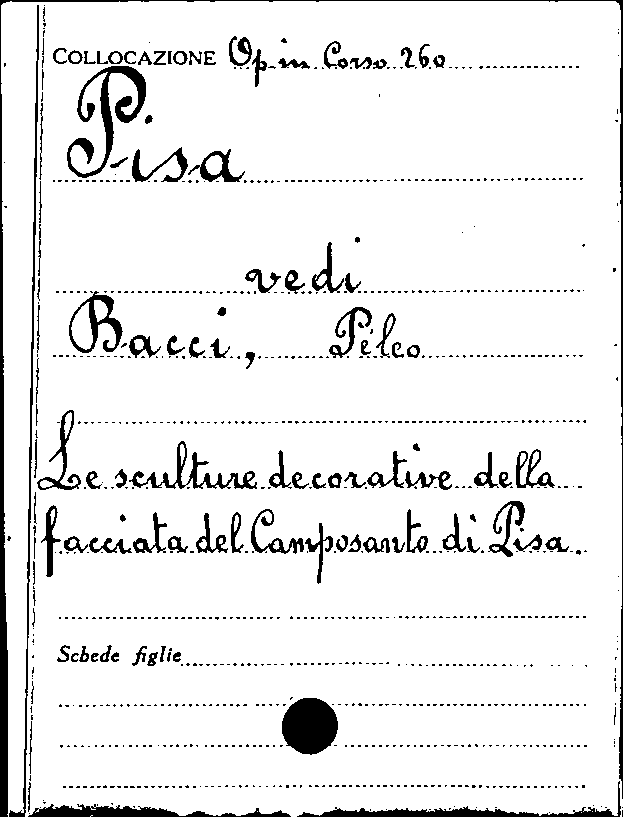 COLLOCAZIONE Op in Corso 260
Pisa
vedi
Bacci, Pèleo
Le sculture decorative della
facciata del Camposanto di Pisa.
Schede figlie